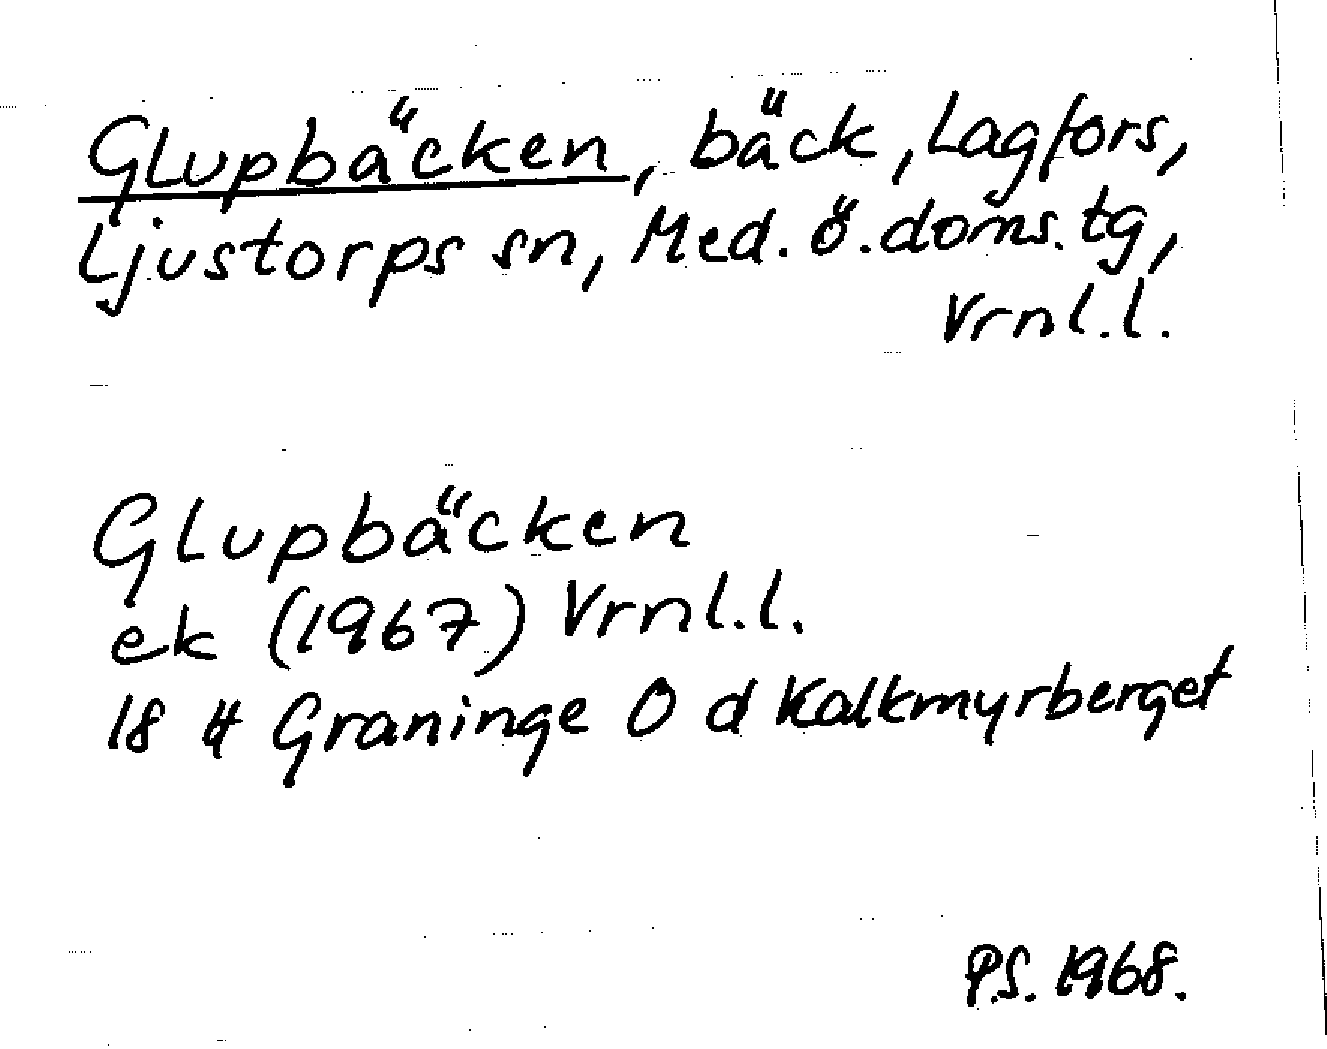 Glupbäcken, bäck, Lagfors,
Ljustorps sn, Med. ö. doms. tg,
Vrnl.l.
Glupbäcken
ek (1967) Vrnl.l.
18 H Graninge O d Kalkmyrberget
P.S. 1968.